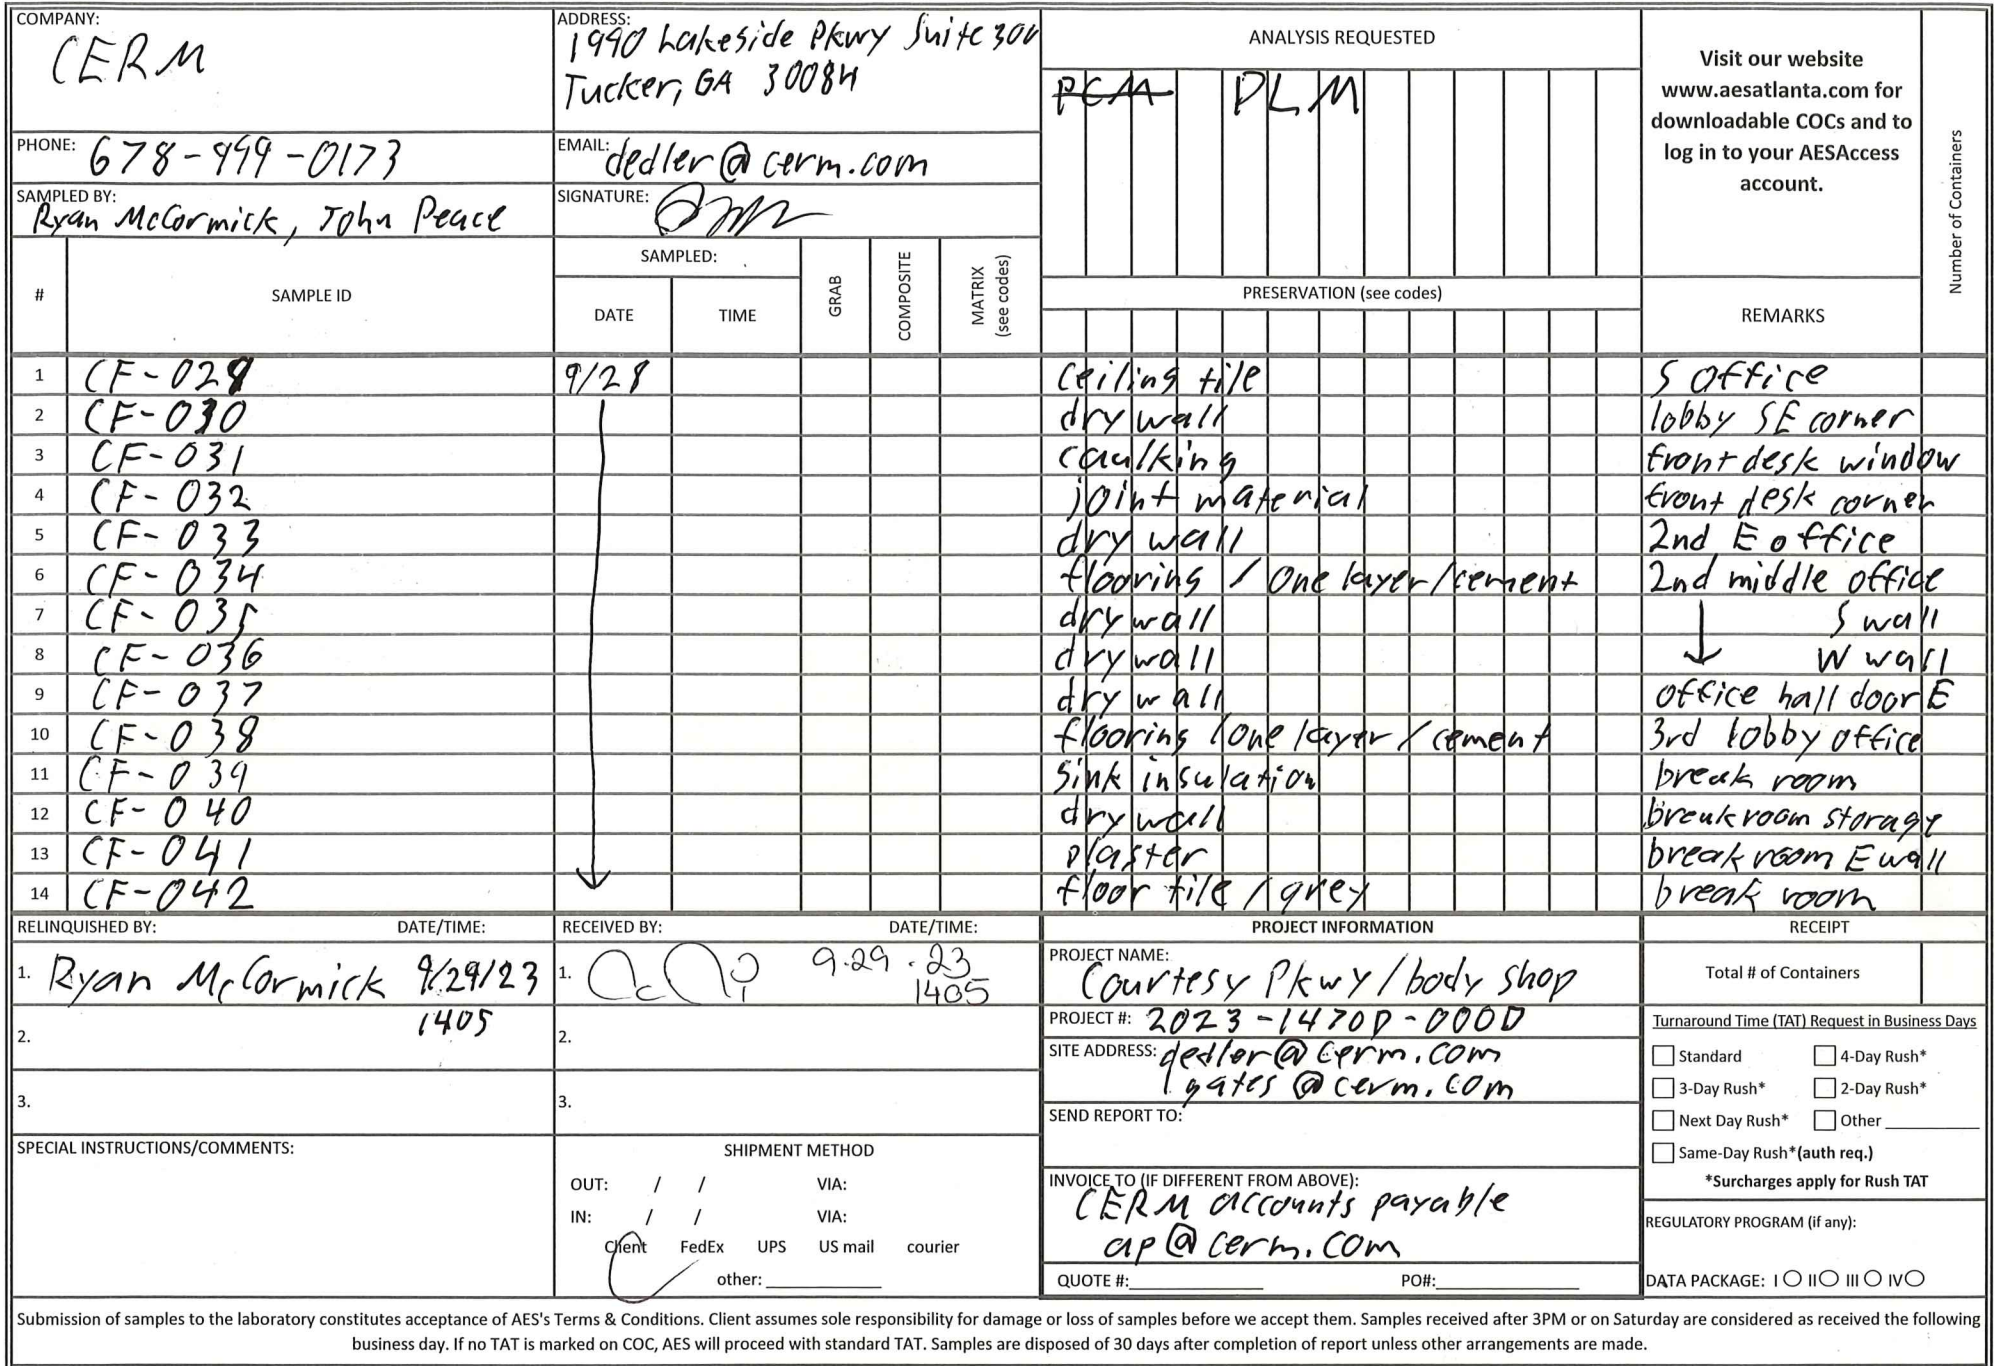 COMPANY:
CERM
ADDRESS:
1990 Lakeside Pkwy Suite 300
Tucker, GA 30084
PHONE: 678-999-0173
EMAIL: dedler@cerm.com
SAMPLED BY:
Ryan McCormick, John Peace
SIGNATURE:
ANALYSIS REQUESTED
PCM PLM
Visit our website
www.aesatlanta.com for
downloadable COCs and to
log in to your AESAccess
account.
Number of Containers
# SAMPLE ID
SAMPLED:
DATE TIME
GRAB
COMPOSITE
MATRIX
(see codes)
PRESERVATION (see codes)
REMARKS
1 CF-029 9/28 ceiling tile S office
2 CF-030 dry wall lobby SE corner
3 CF-031 caulking front desk window
4 CF-032 joint material front desk corner
5 CF-033 dry wall 2nd E office
6 CF-034 flooring / one layer/cement 2nd middle office
7 CF-035 dry wall S wall
8 CF-036 dry wall W wall
9 CF-037 dry wall office hall door E
10 CF-038 flooring / one layer / cement 3rd lobby office
11 CF-039 sink insulation break room
12 CF-040 dry wall breakroom storage
13 CF-041 plaster break room E wall
14 CF-042 floor tile / grey break room
RELINQUISHED BY: DATE/TIME:
1. Ryan McCormick 9/29/23
1405
2.
3.
RECEIVED BY: DATE/TIME:
1. 9.29.23
1405
2.
3.
PROJECT INFORMATION
PROJECT NAME:
Courtesy Pkwy/body shop
PROJECT #: 2023-1470D-000D
SITE ADDRESS: dedler@cerm.com
lgates@cerm.com
SEND REPORT TO:
INVOICE TO (IF DIFFERENT FROM ABOVE):
CERM accounts payable
ap@cerm.com
QUOTE #: PO#:
RECEIPT
Total # of Containers
Turnaround Time (TAT) Request in Business Days
Standard 4-Day Rush*
3-Day Rush* 2-Day Rush*
Next Day Rush* Other
Same-Day Rush*(auth req.)
*Surcharges apply for Rush TAT
REGULATORY PROGRAM (if any):
DATA PACKAGE: I II III IV
SPECIAL INSTRUCTIONS/COMMENTS:
SHIPMENT METHOD
OUT: / / VIA:
IN: / / VIA:
Client FedEx UPS US mail courier
other:
Submission of samples to the laboratory constitutes acceptance of AES's Terms & Conditions. Client assumes sole responsibility for damage or loss of samples before we accept them. Samples received after 3PM or on Saturday are considered as received the following
business day. If no TAT is marked on COC, AES will proceed with standard TAT. Samples are disposed of 30 days after completion of report unless other arrangements are made.